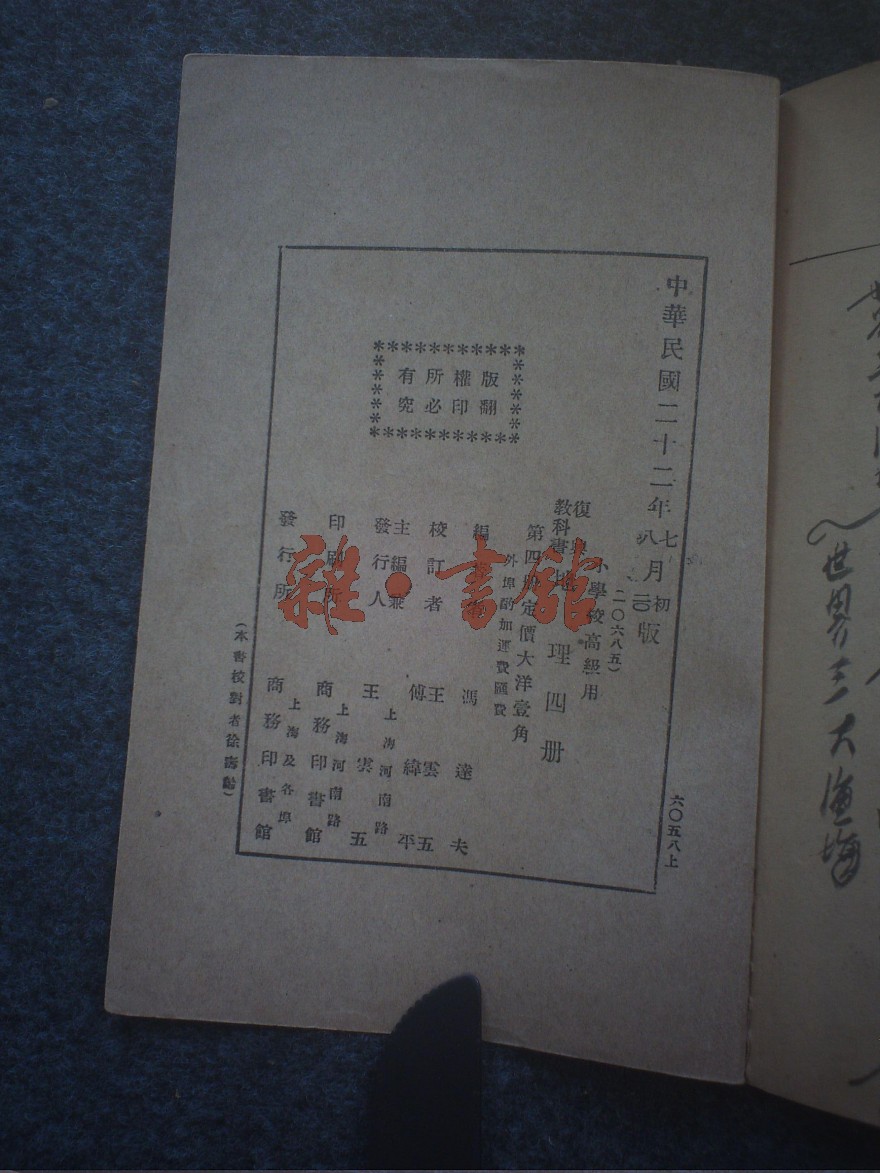 中華民國二十二年七月初版
八 二〇
六〇五八上
(二〇六八五)
小學校高級用
復興
教科書
地理四册
第四册定價大洋壹角
外埠酌加運費匯費
版權所有
翻印必究
馮達夫
校訂者 王雲五
傅緯平
主編兼
發行人 王雲五
上海河南路
印刷所 商務印書館
上海河南路
發行所 商務印書館
上海及各埠
(本書校對者徐
雜·書館
世界三大漁場